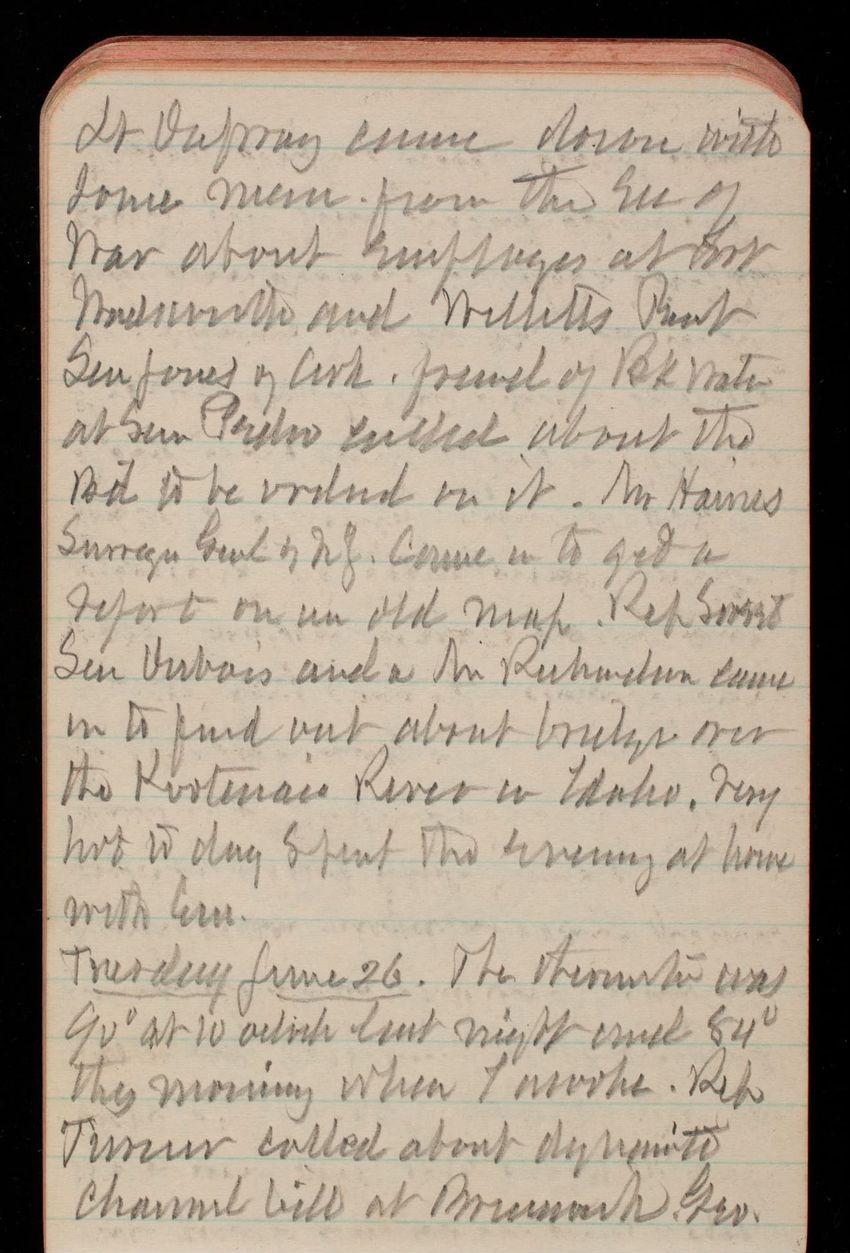 Lt Dapray came down with
some mem. from the Sec of
War about employes at Fort
Wadsworth and Willetts Point
Sen Jones of Ark. friend of Bk Water
at San Pedro called about the
B'd to be ordered on it. Mr Haines
Genl of NJ. Came in to get a
report on an old map. Rep Sweet
Sen Dubois and a Mr Richardson came
in to find out about bridge over
the Kootenaie River in Idaho. Very
hot to day Spent the evening at home
with
Tuesday June 26. The was
90° at 10 oclock last night and 84°
this morning when I awoke. Rep
Turner called about dynamite
Channel bill at Brunswick Geo.